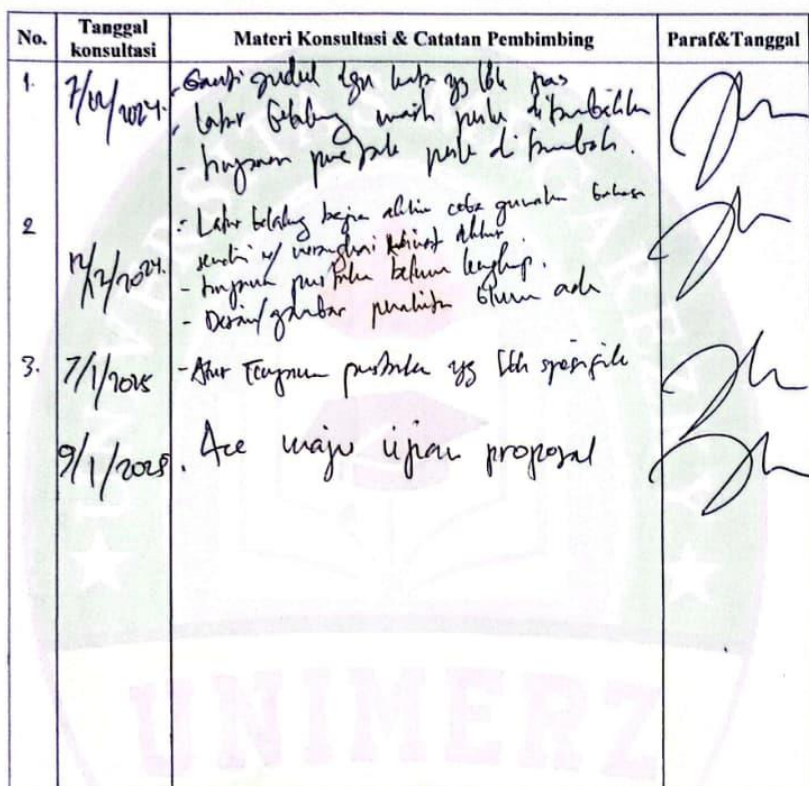 No. Tanggal konsultasi Materi Konsultasi & Catatan Pembimbing Paraf&Tanggal
1. - Ganti judul dgn kata yg lbh pas
- Latar belakang masih perlu ditambahkan
- perlu di tambah.
2 12/12/2024. - Latar belakang bagian akhir coba gunakan bahasa
sendiri
- belum lengkap.
- Desain/gambar penelitian belum ada
3. 7/1/2025 - pustaka yg lbh spesifik
9/1/2025 . Acc maju ujian proposal
UNIMERZ